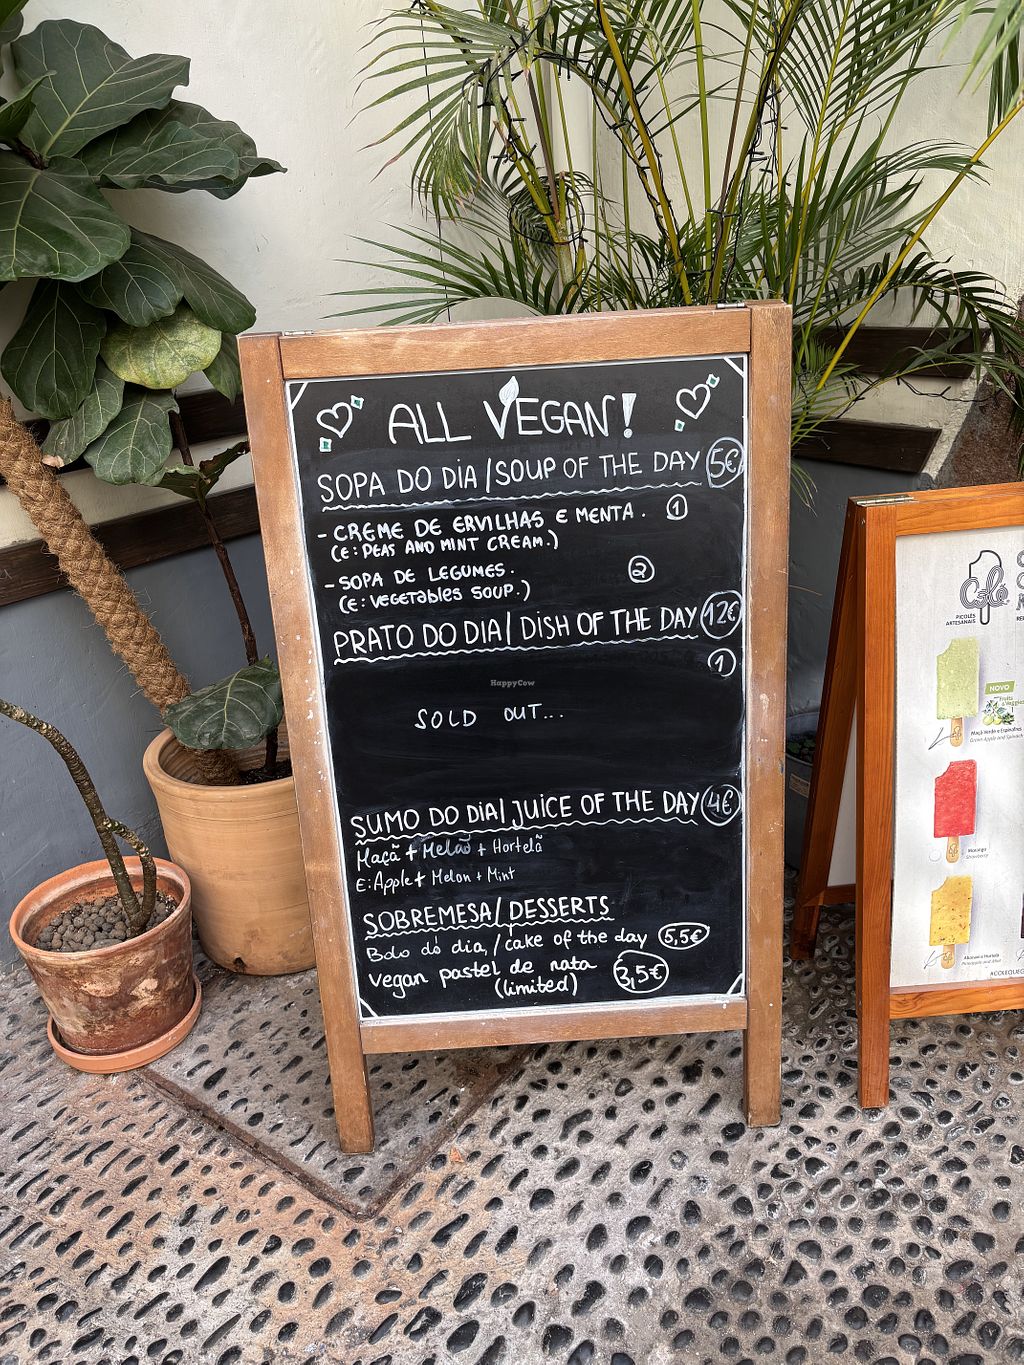 ALL VEGAN!
SOPA DO DIA/SOUP OF THE DAY 5€
- CREME DE ERVILHAS E MENTA. 1
(E: PEAS AND MINT CREAM.)
- SOPA DE LEGUMES. 2
(E: VEGETABLES SOUP.)
PRATO DO DIA/ DISH OF THE DAY 12€
1
HappyCow
SOLD OUT...
SUMO DO DIA/ JUICE OF THE DAY 4€
Maçã + Melão + Hortelã
E: Apple + Melon + Mint
SOBREMESA/ DESSERTS
Bolo do dia, / cake of the day 5,5€
Vegan pastel de nata 3,5€
(limited)
PICOLÉS
ARTESANAIS
NOVO
Fruits
& Veggies
Maçã Verde e Espinafres
Green Apple and Spinach
Morango
Strawberry
Abacaxi e Hortelã
Pineapple and Mint